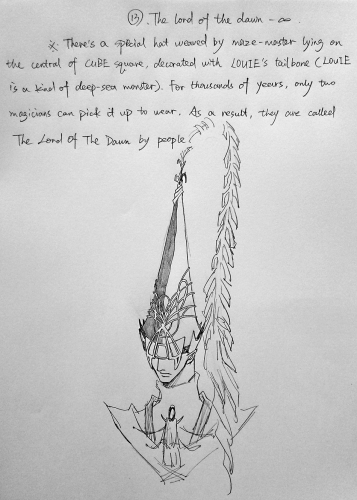 ⑬. The lord of the dawn -∞.
※ There's a special hat weaved by maze-master lying on
the central of CUBE square, decorated with LOUIE's tailbone (LOUIE
is a kind of deep-sea monster). For thousands of yeers, only two
magicians can pick it up to wear. As a result, they are called
The Lord Of The Dawn by people